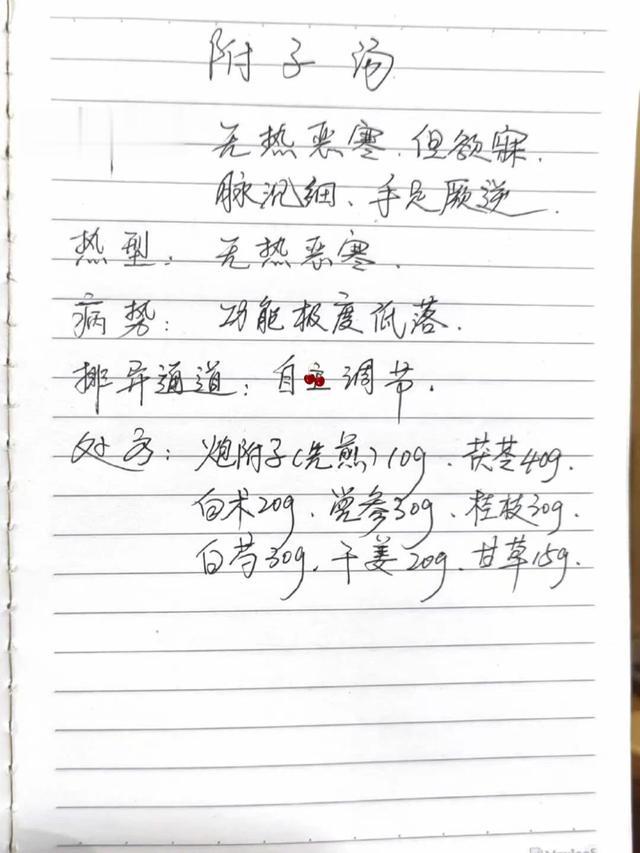 附子汤
无热恶寒、但欲寐、
脉沉细、手足厥逆.
热型: 无热恶寒.
病势: 功能极度低落.
排异通道: 自主调节.
处方: 炮附子(先煎)10g、茯苓40g.
白术20g、党参30g、桂枝30g.
白芍30g、干姜20g、甘草15g.